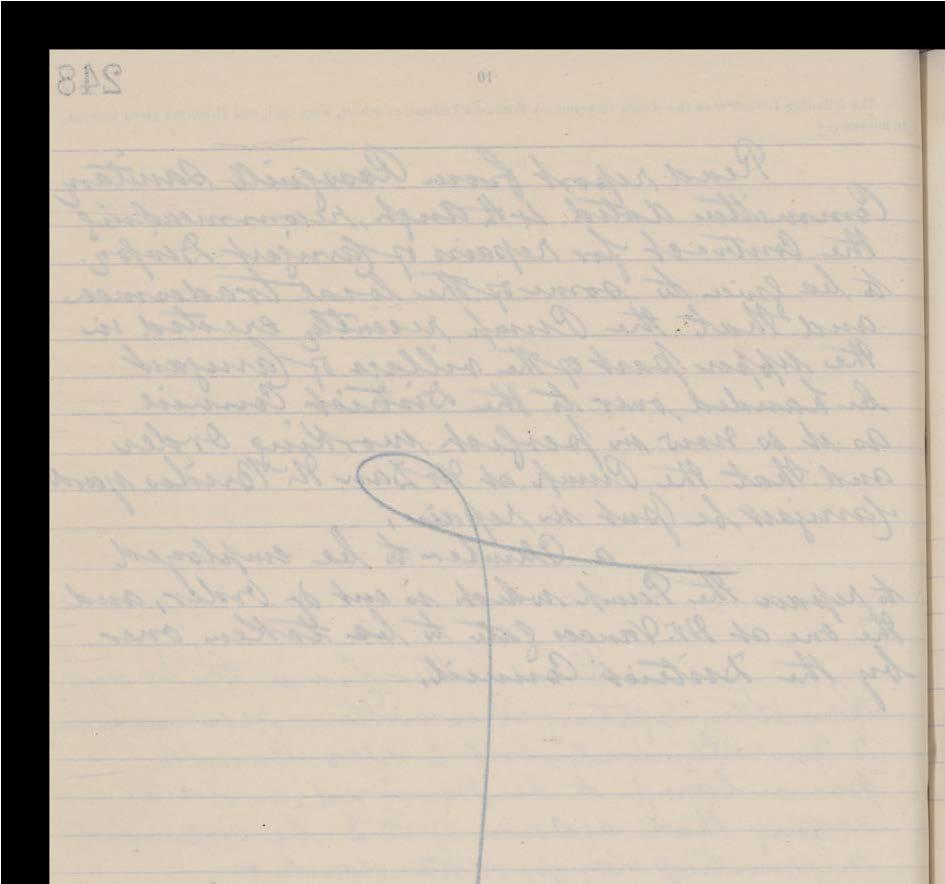 248
10
Read report from Rossguill Sanitary
Committee dated 14th
the Contract for repairs of Carrigart Dispy.
to be given to some of the local tradesmen
and that the Pump recently erected in
the upper part of the village of Carrigart
be handed over to the District Council
as it is now in perfect working Order
and that the Pump at
Carrigart be put in repair,
a Plumber to be employed
to repair the Pump which is out of Order, and
the one at Mr. Vances gate to be taken over
by the District Council.